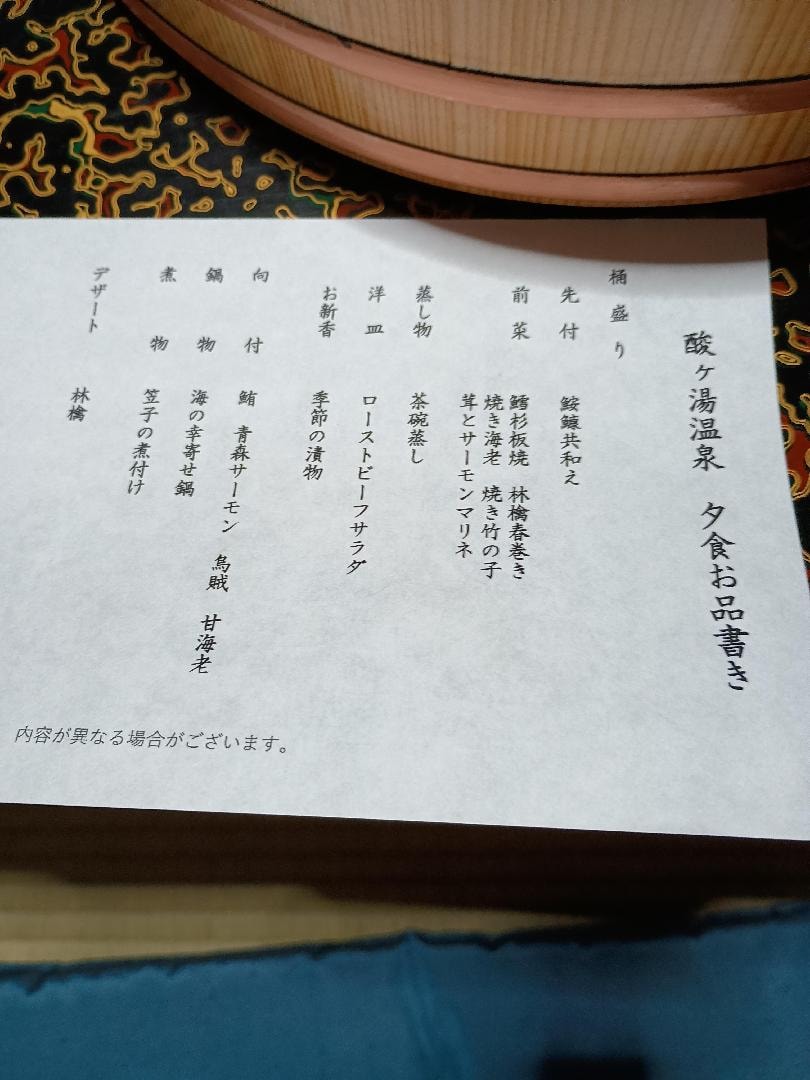 酸ヶ湯温泉 夕食お品書き
桶盛り
先付 鮟鱇共和え
前菜 鱈杉板焼 林檎春巻き
焼き海老 焼き竹の子
茸とサーモンマリネ
蒸し物 茶碗蒸し
洋皿 ローストビーフサラダ
お新香 季節の漬物
向付 鮪 青森サーモン 烏賊 甘海老
鍋物 海の幸寄せ鍋
煮物 笠子の煮付け
デザート 林檎
内容が異なる場合がございます。